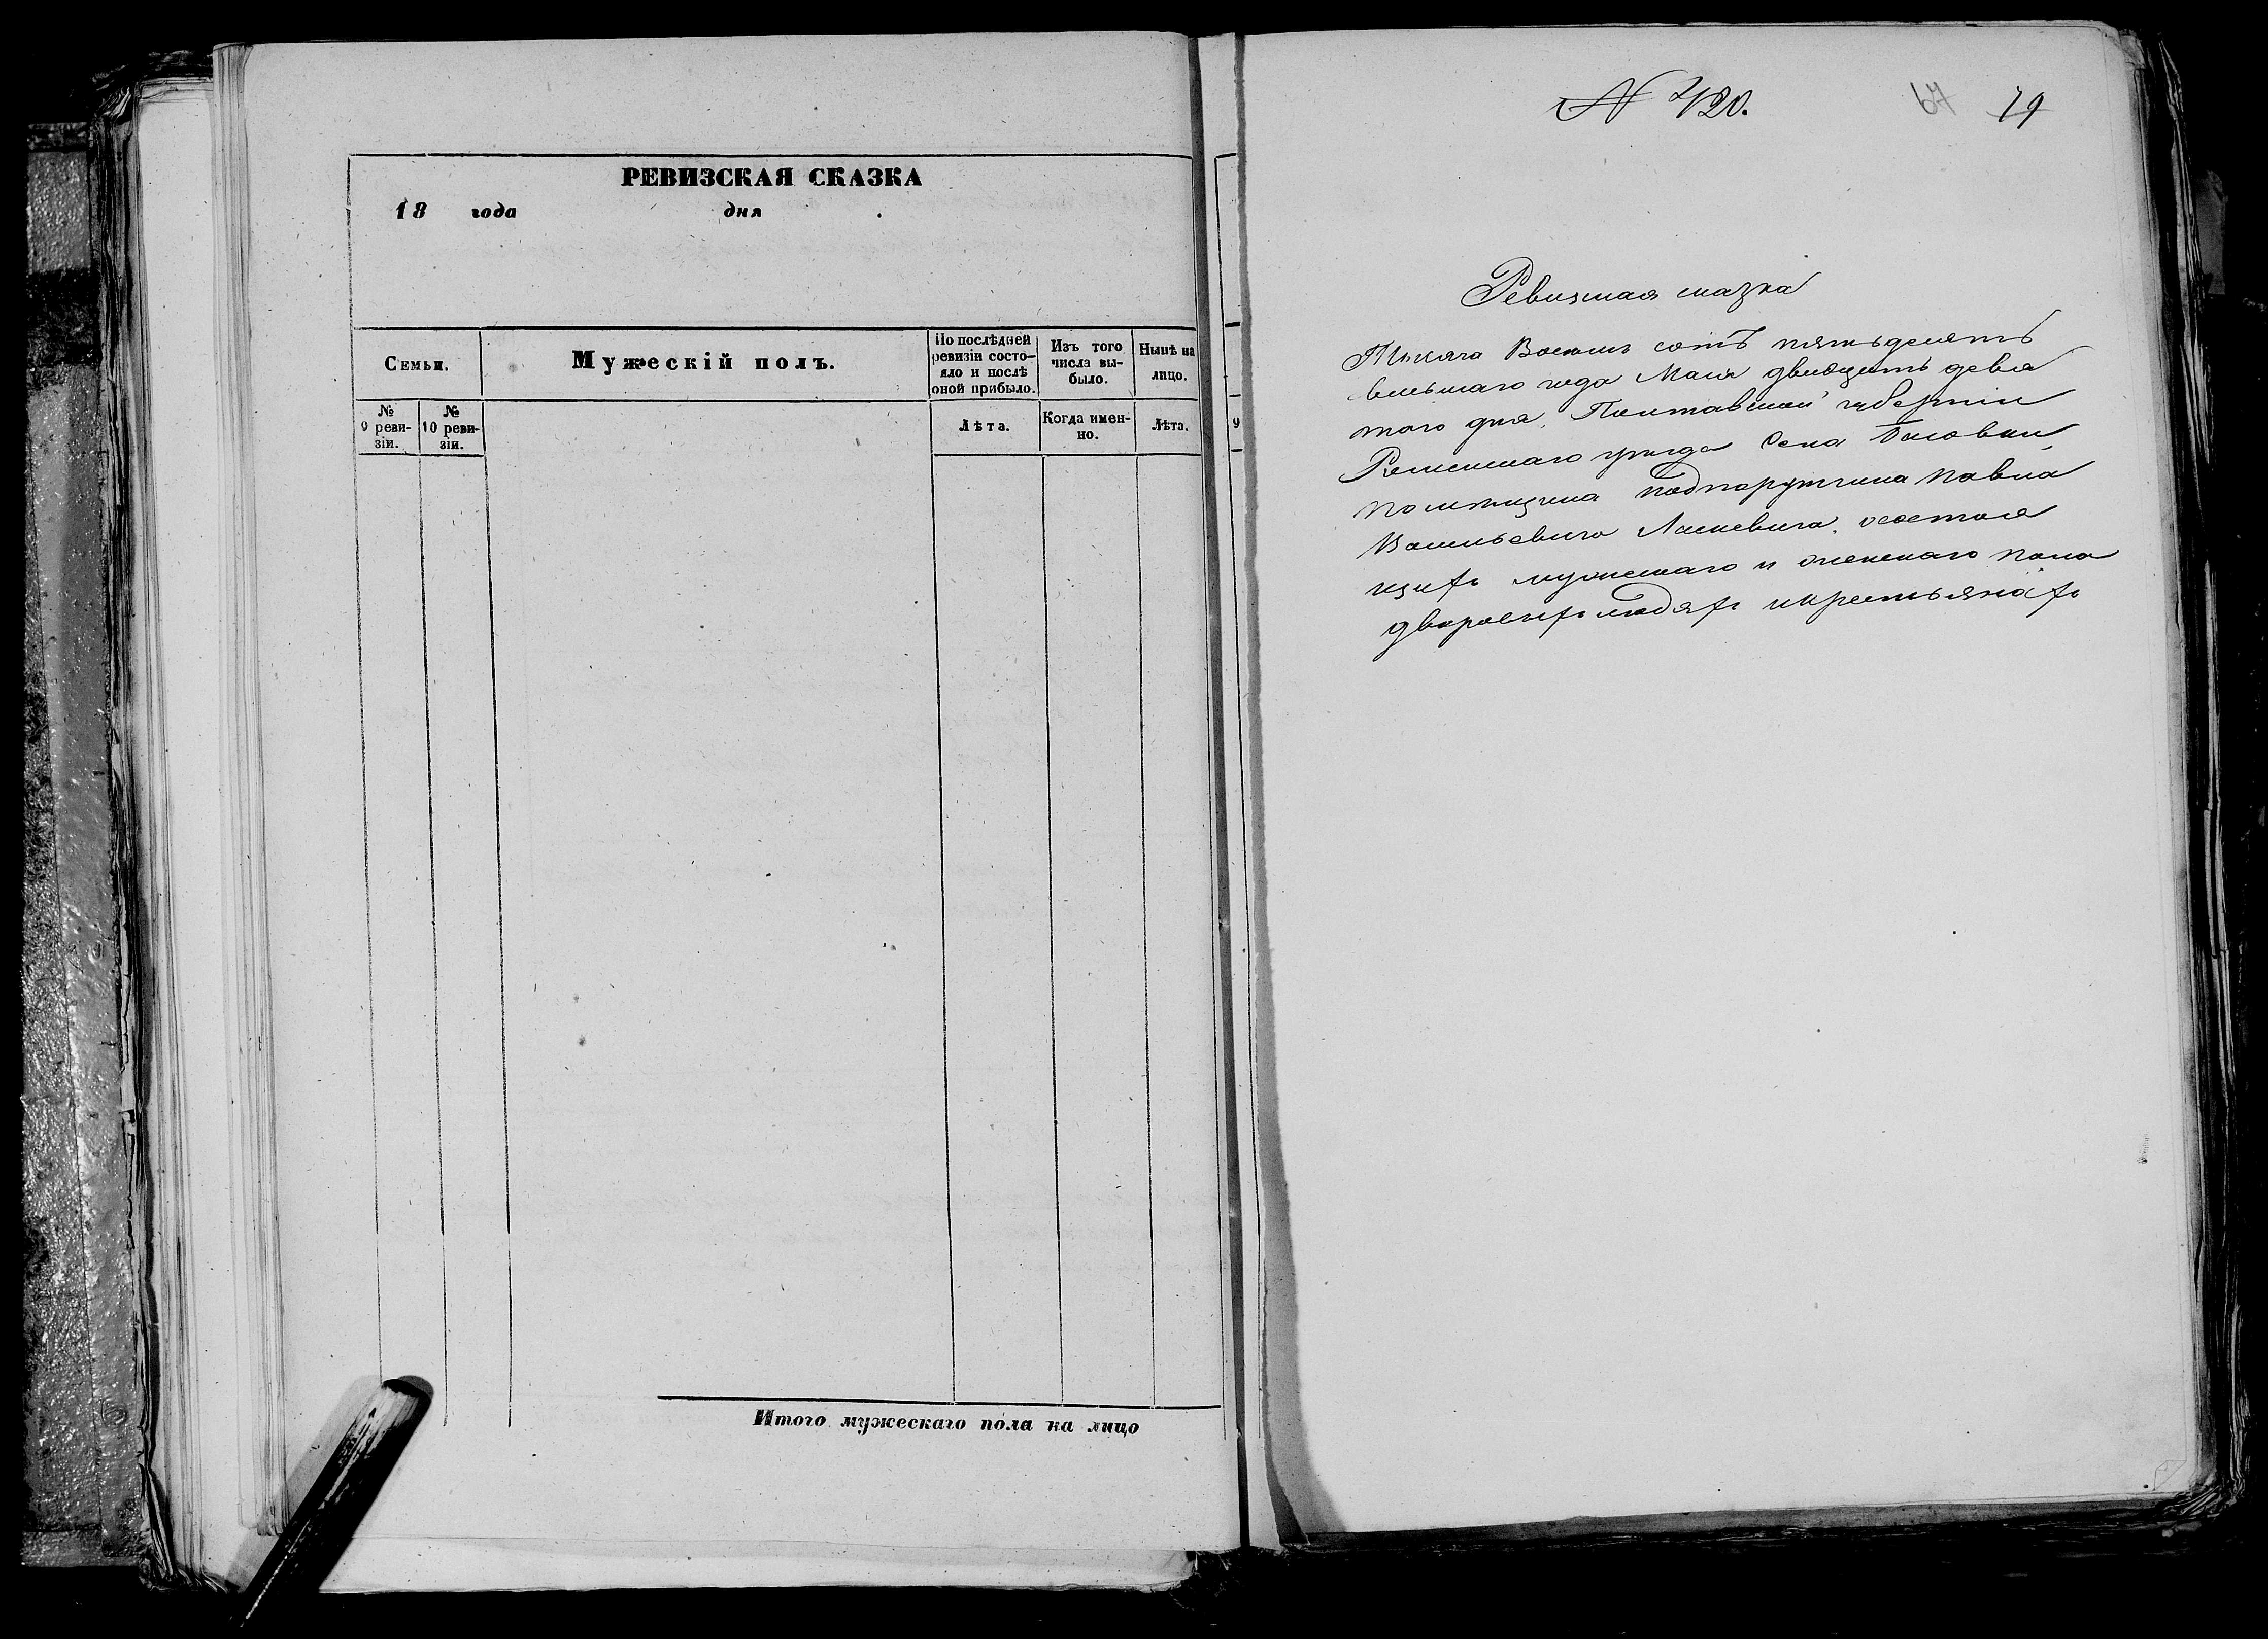 РЕВИЗСКАЯ СКАЗКА
18 года дня
Семьи.
Мужескій полъ.
По послѣдней ревизіи состо-
яло и послѣ
оной прибыло.
Изъ того
числа вы-
было.
Нынѣ на
лицо.
№
9 реви-
зіи.
№
10 реви-
зіи.
Лѣта.
Когда имен-
но.
Лѣта.
9
Итого мужескаго пола на лицо
№ 420.
67 79
Ревизская сказка
Тысяча Восемь сотъ пятьдесятъ
восьмаго года Мая двадцать девя
таго дня, Полтавской губерніи
Роменскаго уѣзда Села Басовки
помѣщика подпоручика Павла
Васильевича Ласкевича, о состоя
щихъ мужескаго и женскаго пола
дворовыхъ людяхъ и крестьянахъ